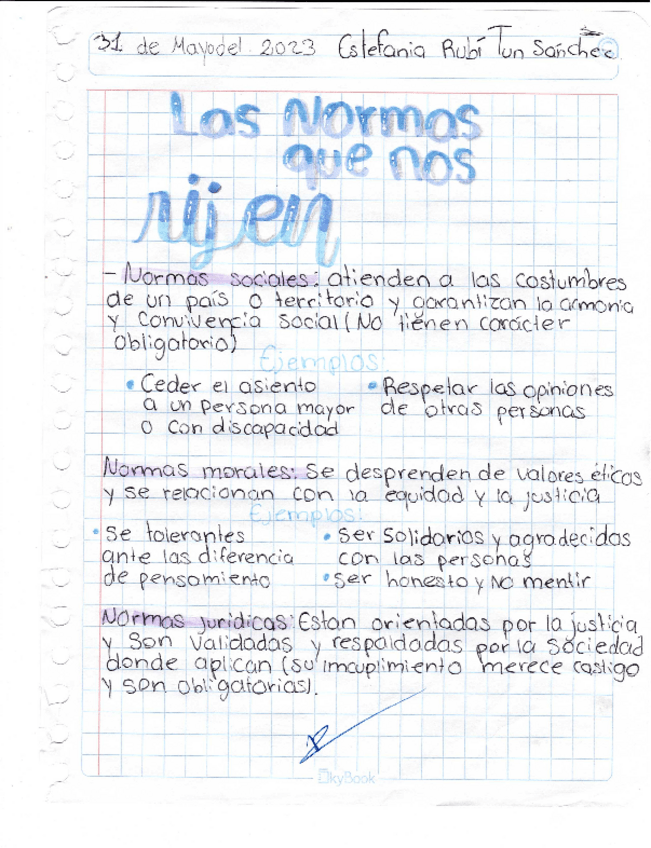 31 de Mayo del 2023 Estefania Rubí Tun Sanchez
Las Normas
que nos
rijen
- Normas sociales: atienden a las costumbres
de un país o territorio y garantizan la armonia
y Convivencia social (No tienen carácter
obligatorio)
Ejemplos:
• Ceder el asiento
a un persona mayor
o con discapacidad
• Respetar las opiniones
de otras personas
Normas morales: Se desprenden de valores éticos
y se relacionan con la equidad y la justicia
Ejemplos:
• Se tolerantes
ante las diferencia
de pensamiento
• Ser Solidarios y agradecidas
con las personas
• Ser honesto y No mentir
Normas juridicas: Estan orientadas por la justicia
y Son Validadas y respaldadas por la Sociedad
donde aplican (su imcuplimiento merece castigo
y son obligatorias).
SkyBook